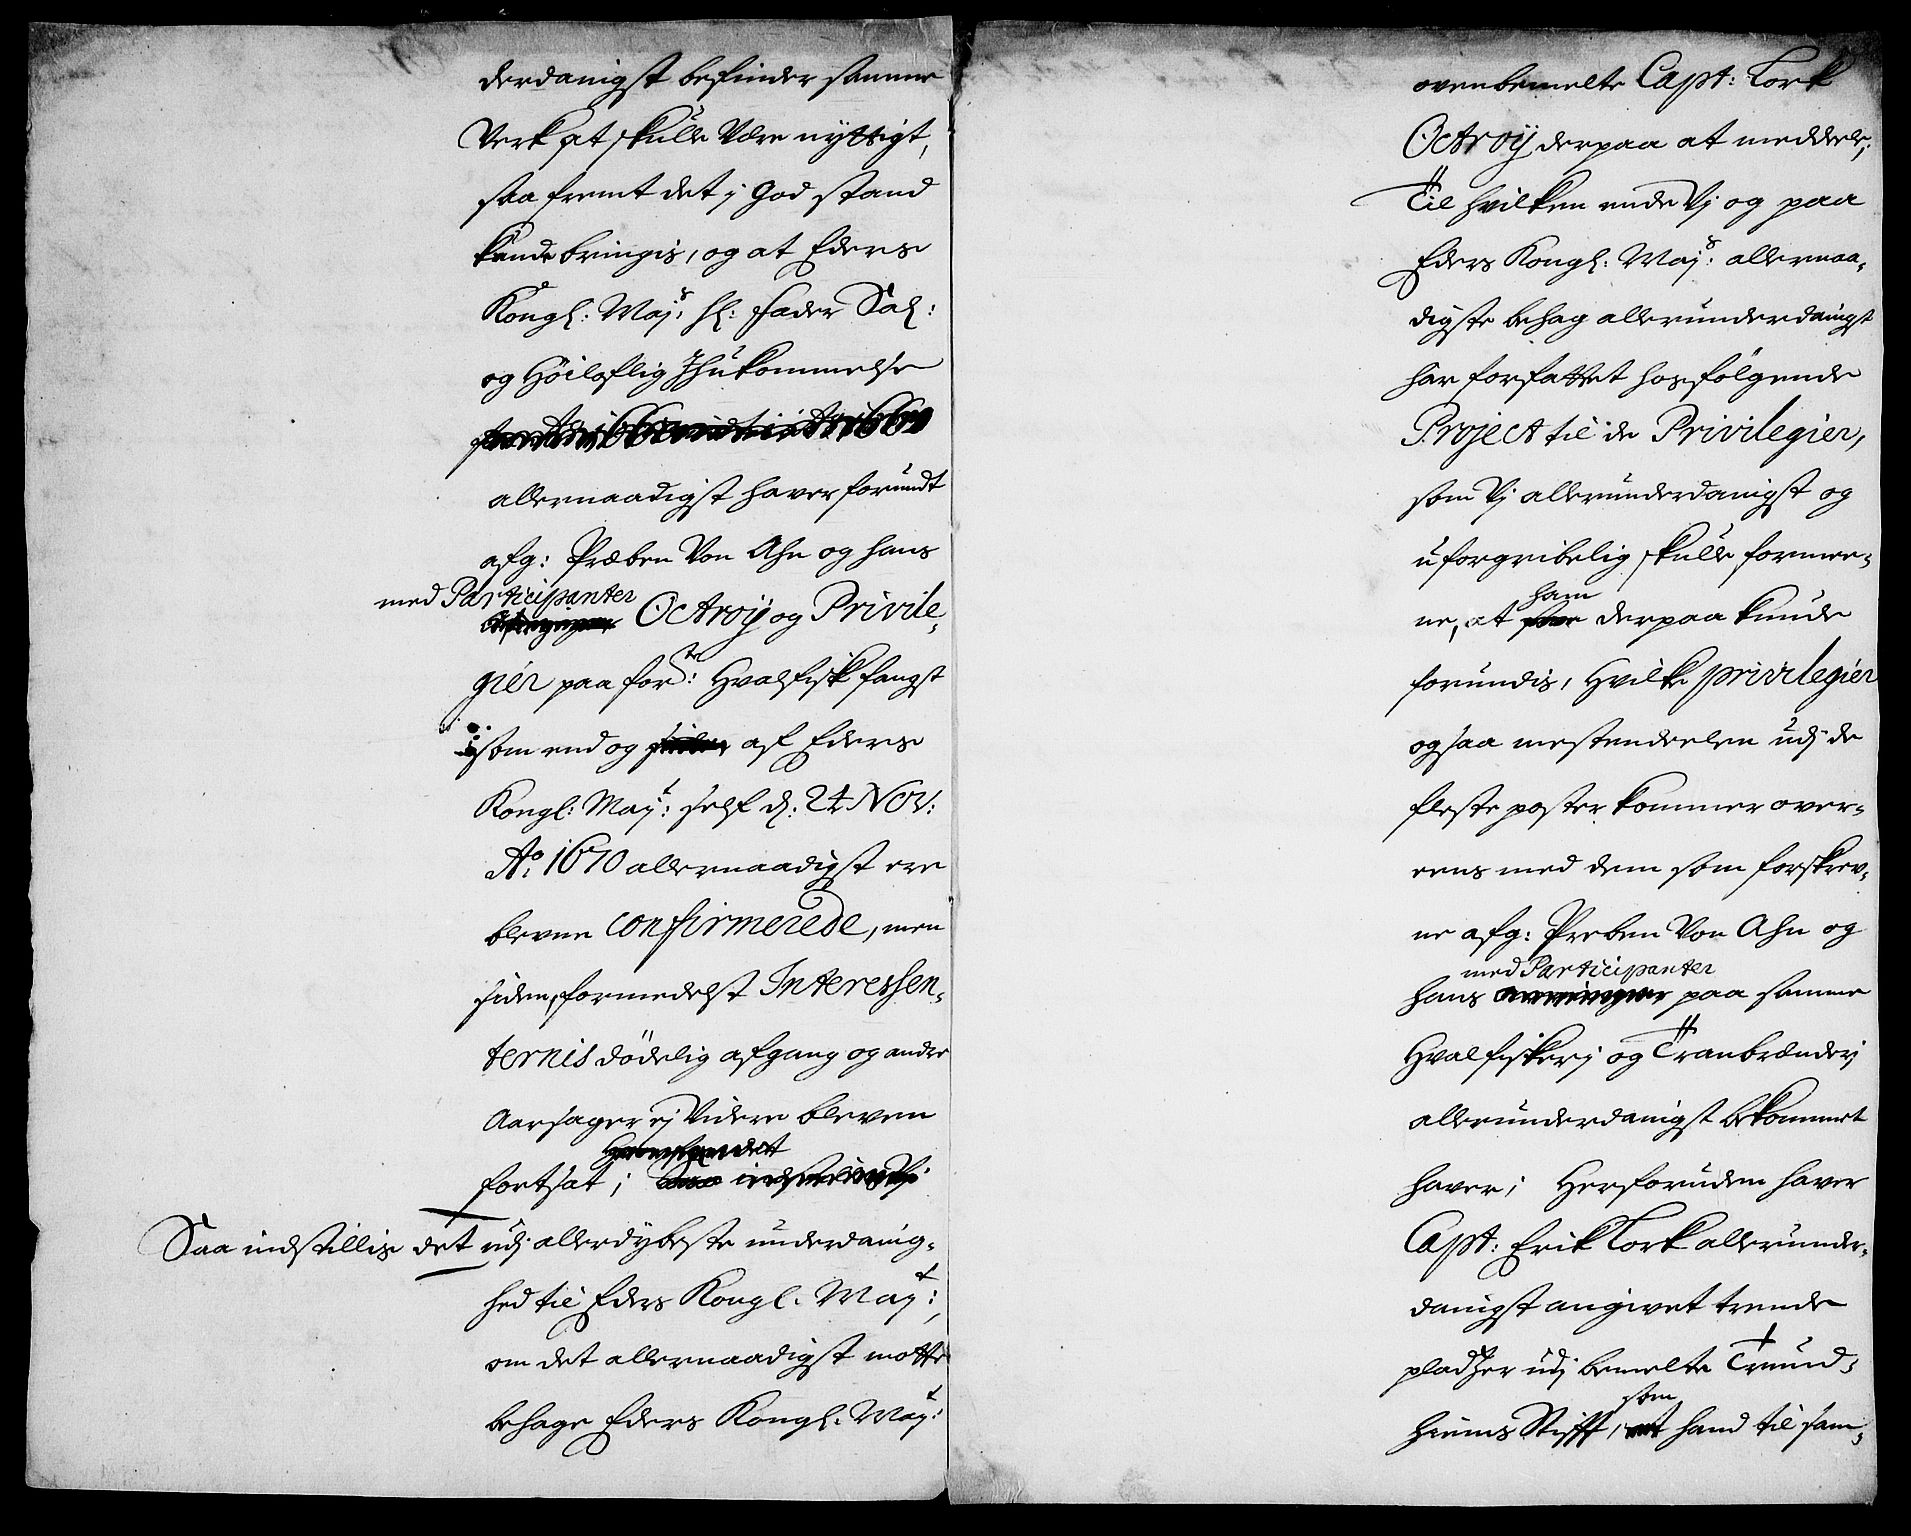 derdanigst befinder samme
Verk at skulle Være nyttigt,
saa fremt det j God stand
kunde bringis, og at Eders
Kongl: Mayˢ: hl: fader Sal:
og Höiloflig Ihukommelse
allernaadigst haver forundt
afg: Præben Von Ahn og hans
med Participanter
Octroÿ og Privile,
gier paa forᵗᵉ: Hvalfisk fangst
som end og af Eders
Kongl: Mayᵗ: self d: 24 Nov:
Aº: 1670 allernaadigst ere
blevne confirmerede, men
siden, formedelst Interessen,
ternis dödelig afgang og andre
Aarsager ej Videre bleven
fortsat;
Saa indstillis det udj allerdybeste underdanig,
hed til Eders Kongl. Mayᵗ:,
om det allernaadigst motte
behage Eders Kongl. Mayᵗ:
ovenbemelte Capt: Tork
Octroÿ derpaa at meddele;
Til hvilken ende Vj og paa
Eders Kongl: Mayˢ: allernaa,
digste behag allerunderdanigst
har forfattet hosfölgende
Project til de Privilegier,
som Vj allerunderdanigst og
uforgribelig skulle formee,
ham
ne, at derpaa kunde
forundis, Hvilke privilegier
ogsaa mestendeelen udj de
fleste poster kommer over,
eens med dem som forskrev,
ne afg: Preben Von Ahn og
med Participanter
hans paa samme
Hvalfiskerj og Tranbrænderj
allerunderdanigst bekommet
haver; Herforuden haver
Capt: Erik Tork allerunder,
danigst angivet trende
pladzer udj bemelte Trund,
som
hiems Stifft, hand til sam,